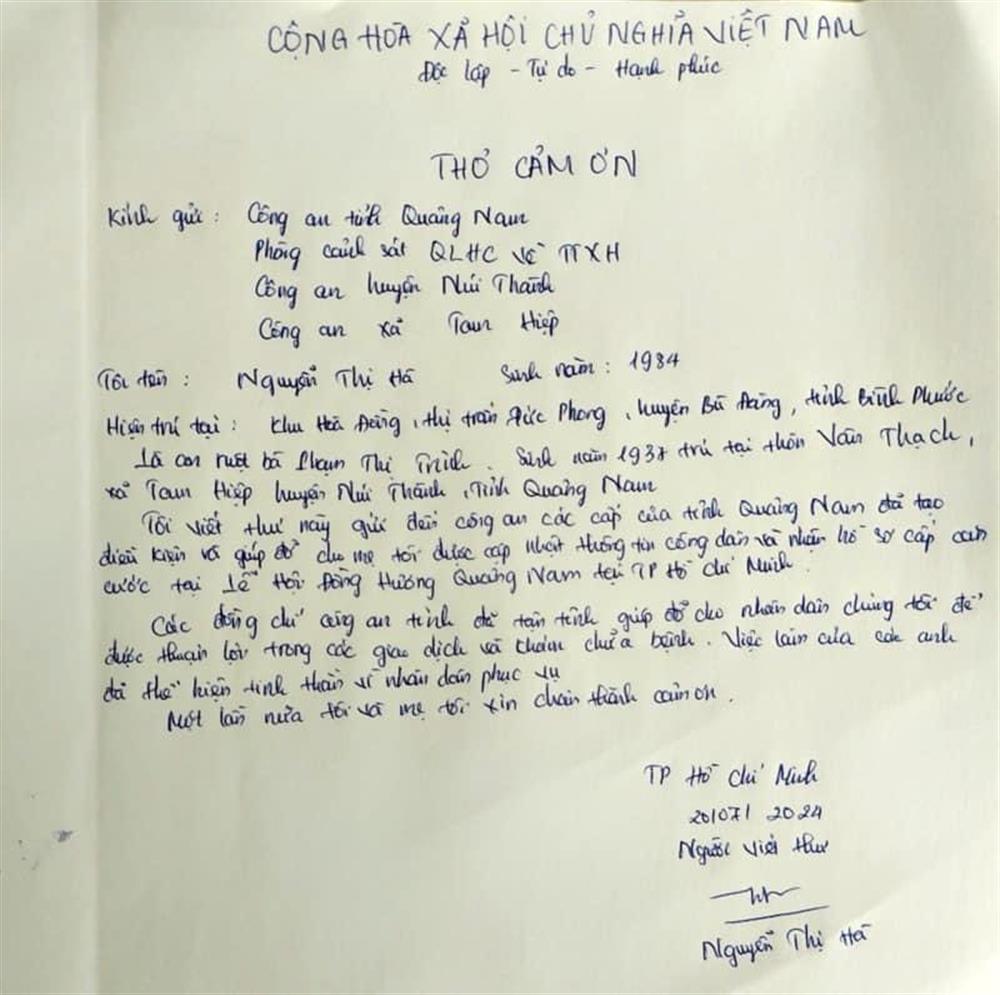 CỘNG HÒA XÃ HỘI CHỦ NGHĨA VIỆT NAM
Độc lập - Tự do - Hạnh phúc
THƠ CẢM ƠN
Kính gửi: Công an tỉnh Quảng Nam
Phòng cảnh sát QLHC về TTXH
Công an huyện Núi Thành
Công an xã Tam Hiệp
Tôi tên: Nguyễn Thị Hà Sinh năm: 1984
Hiện trú tại: Khu Hoà Đồng, thị trấn Đức Phong, huyện Bù Đăng, tỉnh Bình Phước
Là con ruột bà Phạm Thị Trinh. Sinh năm 1937 trú tại thôn Vân Thạch,
xã Tam Hiệp huyện Núi Thành, Tỉnh Quảng Nam
Tôi viết thư này gửi đến công an các cấp của tỉnh Quảng Nam đã tạo
điều kiện và giúp đỡ cho mẹ tôi được cập nhật thông tin công dân và nhận hồ sơ cấp căn
cước tại Lễ Hội Đồng Hương Quảng Nam tại TP Hồ Chí Minh.
Các đồng chí công an tỉnh đã tận tình giúp đỡ cho nhân dân chúng tôi để
được thuận lợi trong các giao dịch và khám chữa bệnh. Việc làm của các anh
đã thể hiện tinh thần vì nhân dân phục vụ
Một lần nữa tôi và mẹ tôi xin chân thành cảm ơn.
TP Hồ Chí Minh
20/07/2024
Người viết thư
Nguyễn Thị Hà